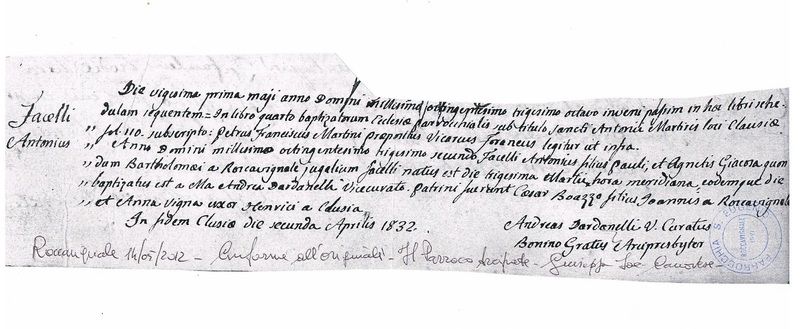 Die vigesima prima maji anno Domini millesimo octingentesimo trigesimo octavo inveni passim in hoc libri sche-
Facelli
Antonius
dulam sequentem = In libro quarto baptizatorum Eclesiæ parrochialis sub titulo sancti Antonii Martiris loci Clausiæ
„ fol. 110. subscripto: Petrus Franciscus Martini præpositus Vicarius Foraneus legitur ut infra.
„ Anno Domini millesimo octingentesimo trigesimo secundo Facelli Antonius filius Pauli, et Agnetis Giacosa quon
„ dam Bartholomæi a Roccavignale jugalium Facelli natus est die trigesima Martii hora meridiana, eodemque die
„ baptizatus est a Me Andrea Dardanelli Vicecurato. Patrini fuerunt Cæsar Boazzo filius Joannis a Roccavignale
„ et Anna vigna uxor Henrici a Clausia
In fidem Clusiæ die secunda Aprilis 1832.
Andreas Dardanelli V. Curatus
Bonino Gratus Aripresbyter
Roccavignale 14/05/2012 - Conforme all'originale - Il Parroco - Giuseppe
PARROCCHIA S.